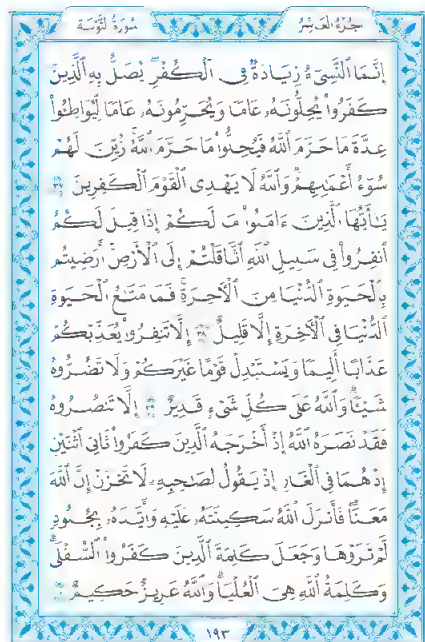 سُورَةُ التَّوْبَةِ
الجُزْءُ العَاشِرُ
إِنَّمَا ٱلنَّسِىٓءُ زِيَادَةٌ فِى ٱلْكُفْرِ يُضَلُّ بِهِ ٱلَّذِينَ
كَفَرُوا۟ يُحِلُّونَهُۥ عَامًا وَيُحَرِّمُونَهُۥ عَامًا لِّيُوَاطِـُٔوا۟
عِدَّةَ مَا حَرَّمَ ٱللَّهُ فَيُحِلُّوا۟ مَا حَرَّمَ ٱللَّهُ زُيِّنَ لَهُمْ
سُوٓءُ أَعْمَـٰلِهِمْ وَٱللَّهُ لَا يَهْدِى ٱلْقَوْمَ ٱلْكَـٰفِرِينَ ٣٧
يَـٰٓأَيُّهَا ٱلَّذِينَ ءَامَنُوا۟ مَا لَكُمْ إِذَا قِيلَ لَكُمُ
ٱنفِرُوا۟ فِى سَبِيلِ ٱللَّهِ ٱثَّاقَلْتُمْ إِلَى ٱلْأَرْضِ أَرَضِيتُم
بِٱلْحَيَوٰةِ ٱلدُّنْيَا مِنَ ٱلْـَٔاخِرَةِ فَمَا مَتَـٰعُ ٱلْحَيَوٰةِ
ٱلدُّنْيَا فِى ٱلْـَٔاخِرَةِ إِلَّا قَلِيلٌ ٣٨ إِلَّا تَنفِرُوا۟ يُعَذِّبْكُمْ
عَذَابًا أَلِيمًا وَيَسْتَبْدِلْ قَوْمًا غَيْرَكُمْ وَلَا تَضُرُّوهُ
شَيْـًٔا وَٱللَّهُ عَلَىٰ كُلِّ شَىْءٍ قَدِيرٌ ٣٩ إِلَّا تَنصُرُوهُ
فَقَدْ نَصَرَهُ ٱللَّهُ إِذْ أَخْرَجَهُ ٱلَّذِينَ كَفَرُوا۟ ثَانِىَ ٱثْنَيْنِ
إِذْ هُمَا فِى ٱلْغَارِ إِذْ يَقُولُ لِصَـٰحِبِهِۦ لَا تَحْزَنْ إِنَّ ٱللَّهَ
مَعَنَا فَأَنزَلَ ٱللَّهُ سَكِينَتَهُۥ عَلَيْهِ وَأَيَّدَهُۥ بِجُنُودٍ
لَّمْ تَرَوْهَا وَجَعَلَ كَلِمَةَ ٱلَّذِينَ كَفَرُوا۟ ٱلسُّفْلَىٰ
وَكَلِمَةُ ٱللَّهِ هِىَ ٱلْعُلْيَا وَٱللَّهُ عَزِيزٌ حَكِيمٌ ٤٠
١٩٣